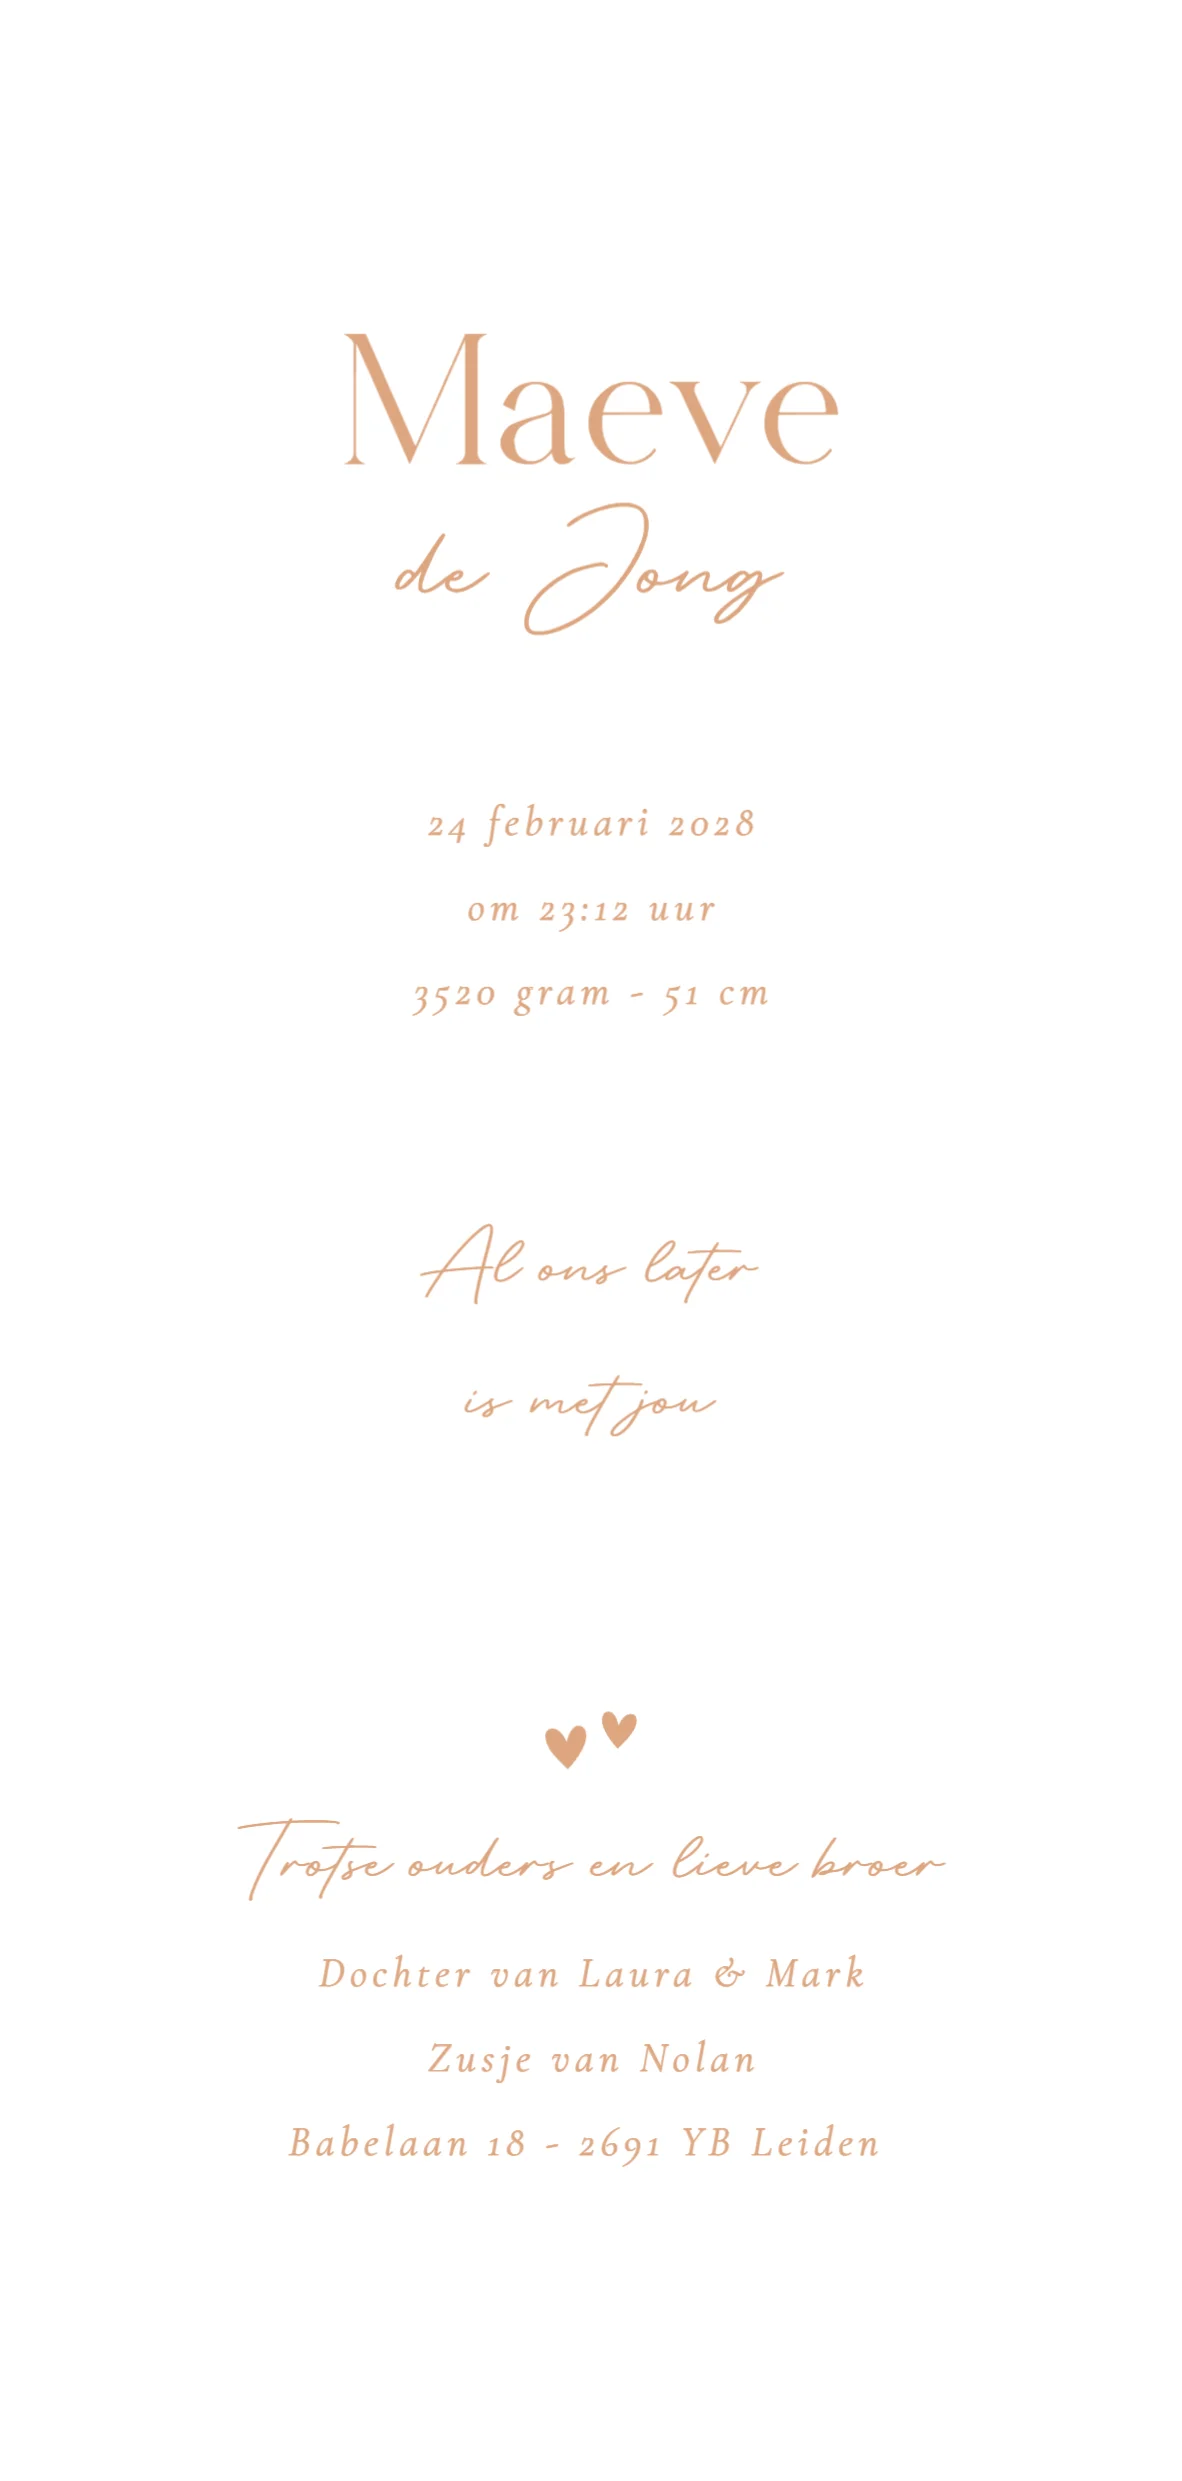 Maeve
de Jong
24 februari 2028
om 23:12 uur
3520 gram - 51 cm
Al ons later
is met jou
Trotse ouders en lieve broer
Dochter van Laura & Mark
Zusje van Nolan
Babelaan 18 - 2691 YB Leiden